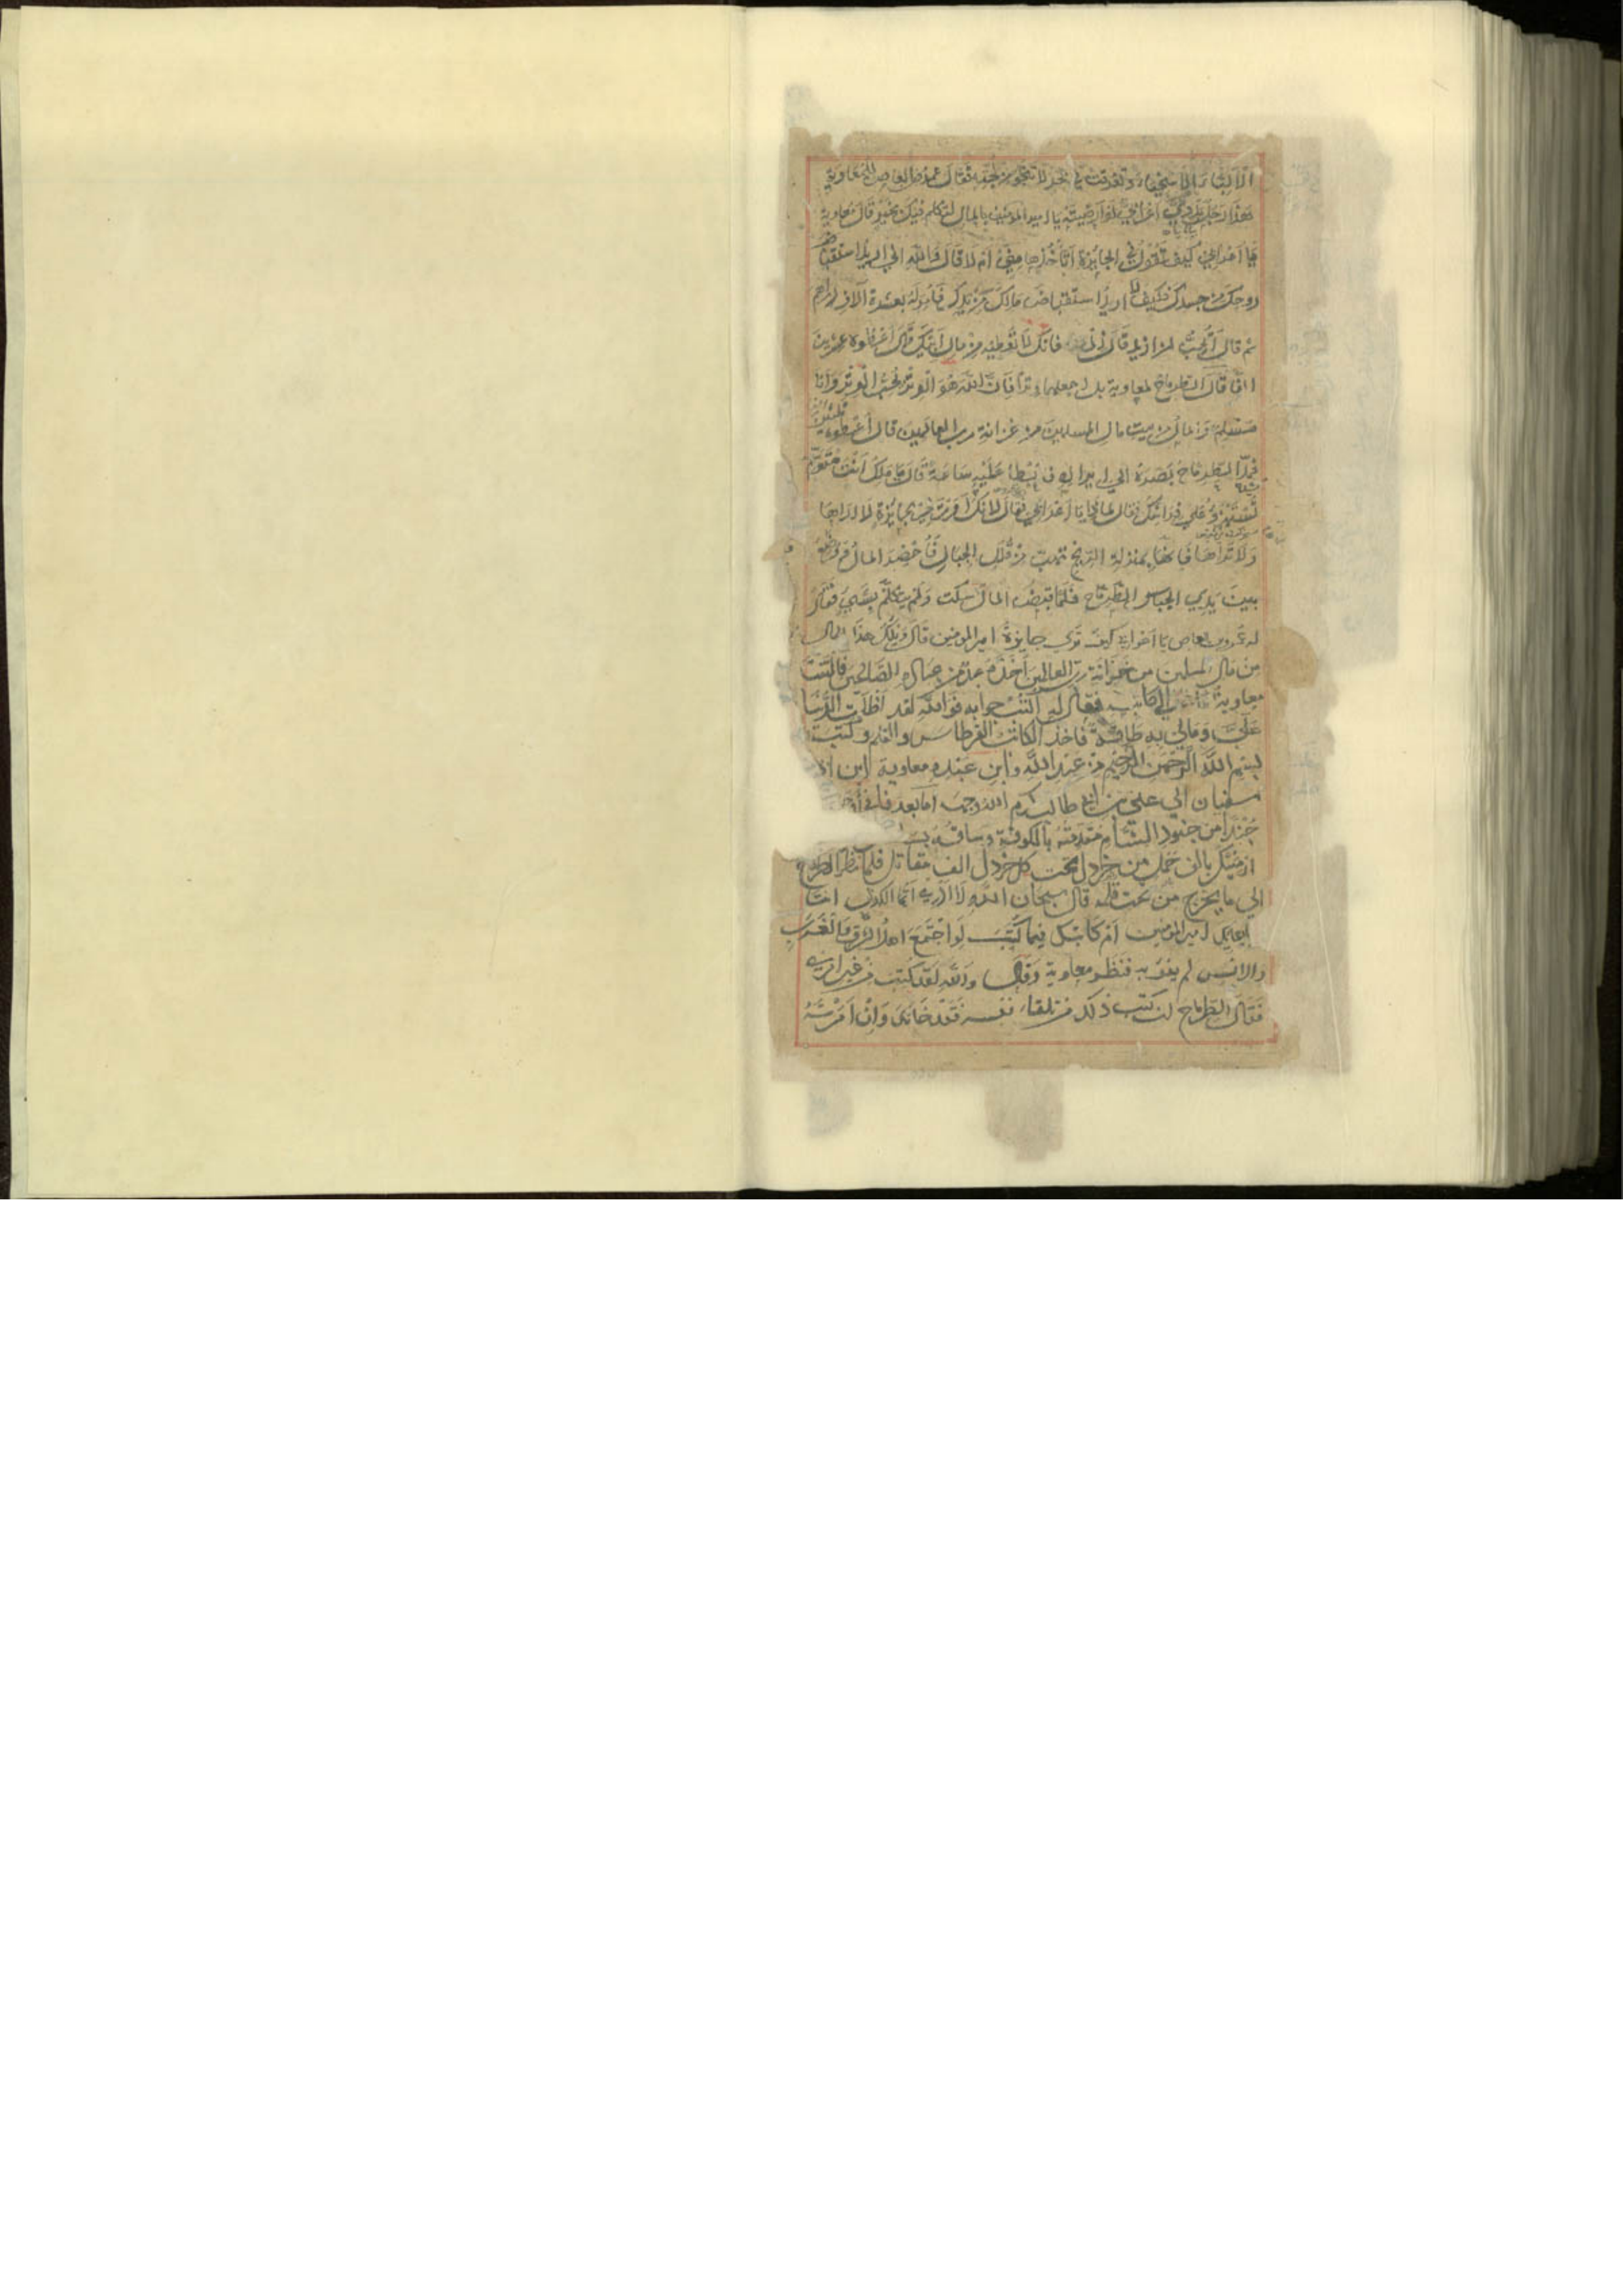 فقال عمرو بن العاص لمعاوية
هذا رجل بدوي اعرابي لو ارضيته يا امير المؤمنين بالمال لتكلم فيك بخير قال معاوية
يا اعرابي كيف تقول في الجايزة اتأخذها مني ام لا قال والله اني اريد استقباض
روحك من جسدك فكيف لا اريد استقباض مالك من يدك فأمر له بعشرة آلاف درهم
ثم قال أتحب لمن ازيد قال فانك لا تعطيه من مال ابيك قال اعطوه عشرين
الفا قال الطرماح لمعاوية بل اجعلها وترا فان الله هو الوتر يحب الوتر وانا
مسلم والمال من بيت مال المسلمين من خزانة رب العالمين قال اعطوه ثلثين
فمد الطرماح بصره الي ايراد فبطأ عليه ساعة قال يا ملك انت
تستهزؤ علي فراشك فقال لماذا يا اعرابي فقال لانك امرت لي بجايزة لا اراها
ولا تراها فانها بمنزلة الريح تهب من قلل الجبال فأحضر المال ووضع
بين يدي الطرماح فلما قبض المال سكت ولم يتكلم بشي فقال
له عمرو بن العاص يا اعرابي كيف تري جايزة امير المؤمنين قال ويلك هذا المال
من مال المسلمين من خزانة رب العالمين اخذه عبد من عباده الصالحين فالتفت
معاوية الي الكاتب فقال له اكتب جوابه فوالله لقد اظلمت الدنيا
علي ومالي به طاقة فاخذ الكاتب القرطاس والقلم وكتب
بسم الله الرحمن الرحيم من عبد الله وابن عبده معاوية ابن
سفيان الي علي بن ابي طالب كرم الله وجهه اما بعد فاني
جندا من جنود الشام مقدمته بالكوفة وساقته
ارميك بالف حمل من خردل تحت كل خردل الف مقاتل فلما نظر الطرماح
الي ما يخرج من تحت قلمه قال سبحان الله لا ادري ايما اكذب انت
يا امير المؤمنين ام كاتبك فيما كتب لو اجتمع اهل الشرق والغرب
والانس لم يقو به فنظر معاوية وقال والله لقد كتب من غير امري
فقال الطرماح لئن كتب ذلك من تلقاء نفسه فقد خانك وان امرته